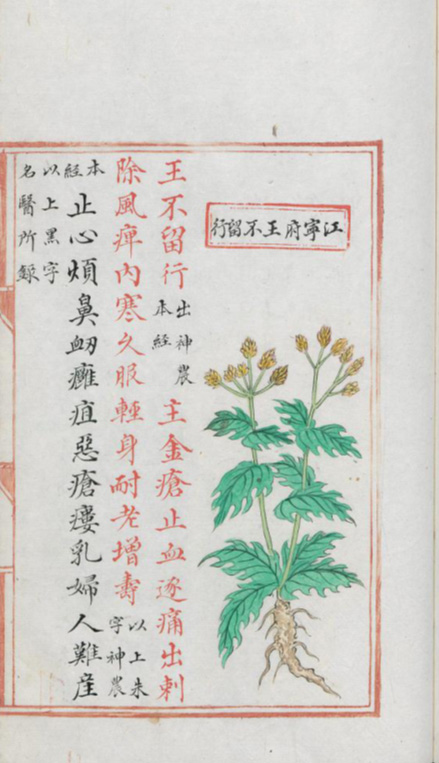 江寧府王不留行
王不留行出神農本經主金瘡止血逐痛出刺
除風痺内寒久服輕身耐老增壽以上朱字神農
本經止心煩鼻衂癰疽惡瘡瘻乳婦人難産
以上黑字名醫所錄